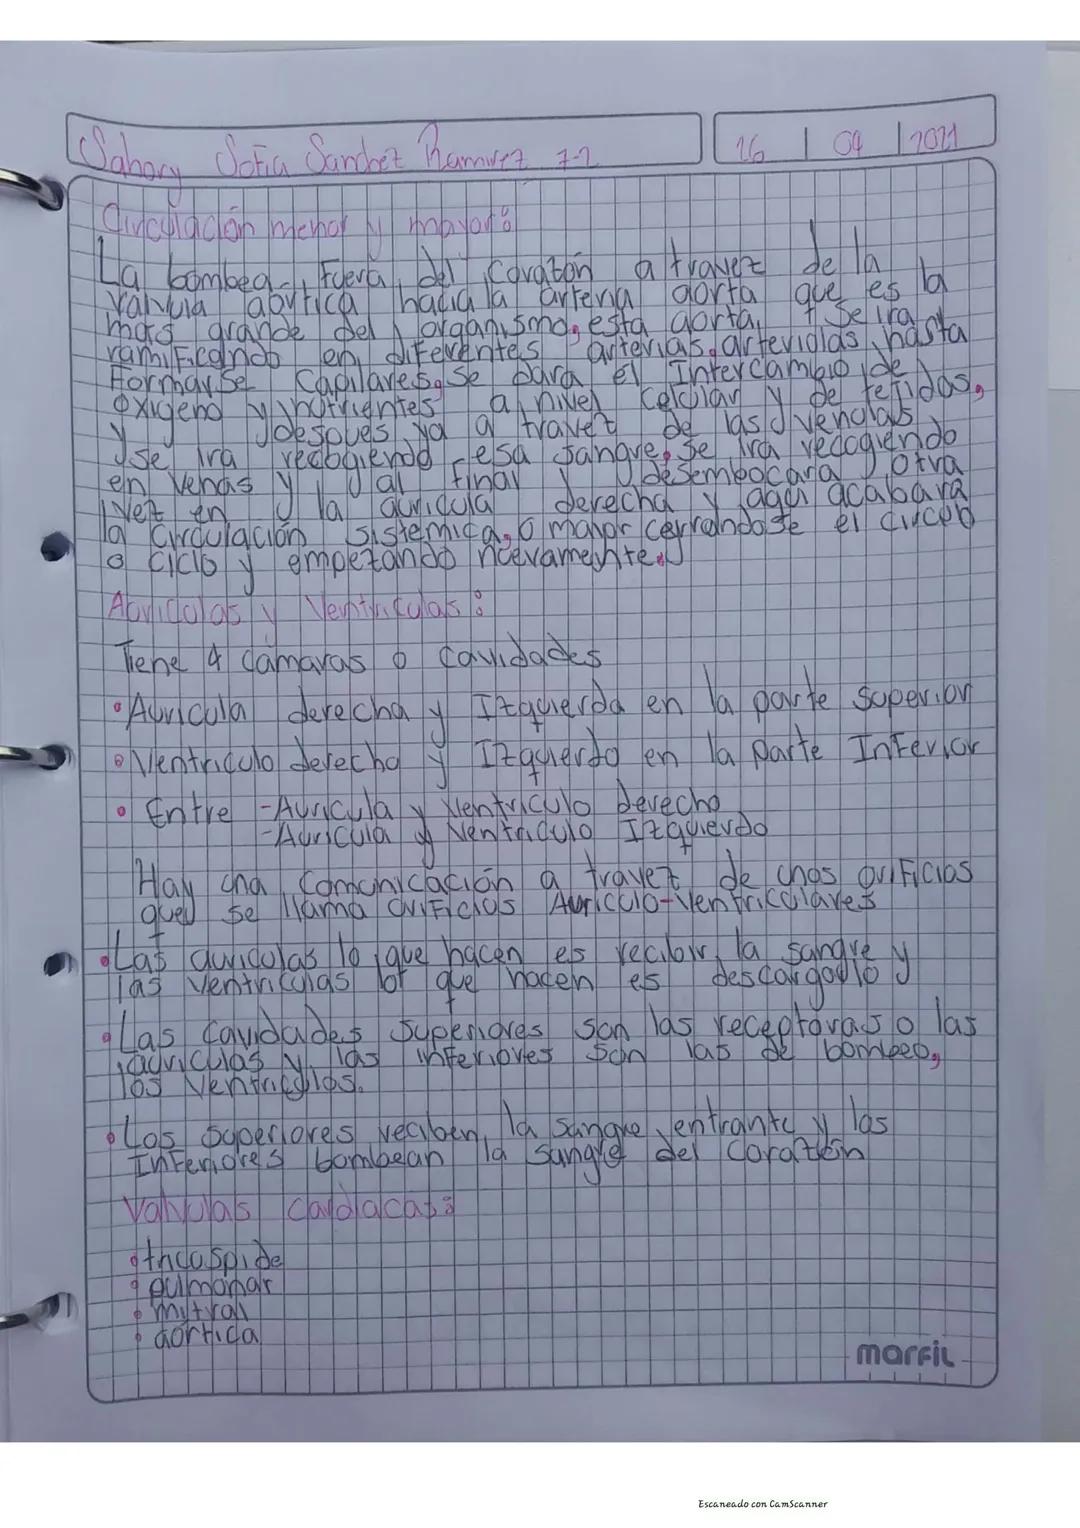 Sahory Sofia Sanchez Ramirez 7-2 16 | 04 | 2021
Circulación menor y mayor:
La bombea fuera del corazón a travez de la
valvula aortica hacia la arteria aorta que es la
mas grande del organismo, esta aorta, se ira
ramificando en diferentes arterias, arteriolas hasta
Formarse Capilares, se para el Intercambio de
oxigeno y nutrientes a nivel celular y de tejidos,
y despues ya a travez de las venulas
se ira recogiendo esa sangre, se ira recogiendo
en venas y al final desembocara otra
vez en la auricula derecha y aqui acabara
la circulación sistemica, o mayor cerrandose el circuo
o ciclo y empezando nuevamente.
Auriculas y Ventriculas:
Tiene 4 camaras o cavidades
• Auricula derecha y Izquierda en la parte superior
• Ventriculo derecho y Izquierdo en la parte Inferior
• Entre -Auricula y Ventriculo derecho
-Auricula y Ventriculo Izquierdo
Hay una comunicación a travez de unos orificios
que se llama orificios Auriculo-Ventriculares
• Las auriculas lo que hacen es recibir la sangre y
las ventriculas lo que hacen es
• Las cavidades superiores son las receptoras o las
auriculas y las inferiores son las de bombeo,
los ventriculos.
• Los superiores reciben la sangre entrante y los
Inferiores bombean la sangre del corazón
Valvulas cardiacas:
• tricuspide
• pulmonar
• mytral
• aortica
marfil
Escaneado con CamScanner